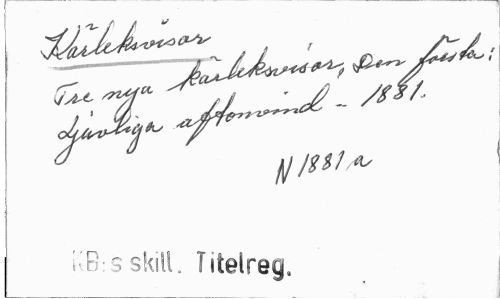 Kärleksvisor
Tre nya kärleksvisor, Den första:
Ljuvliga aftonvind - 1881.
N 1881 a
KB:s skill. Titelreg.